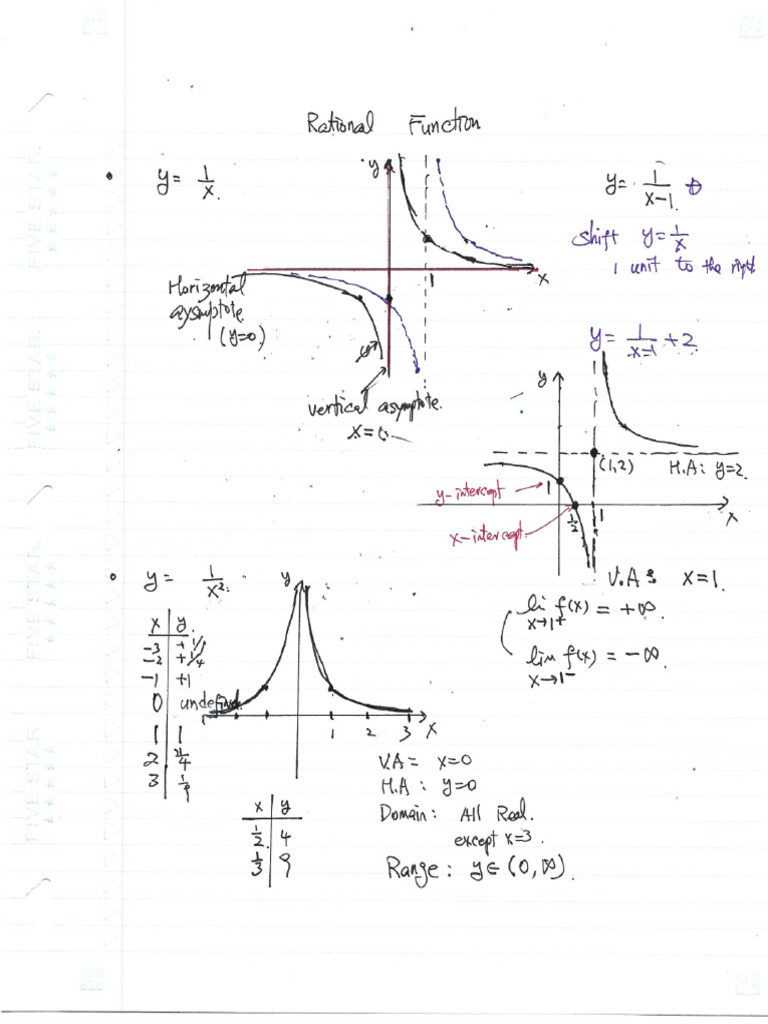 Rational Function
y = 1/x.
y
1
x
Horizontal
asymptote.
(y=0)
vertical asymptote.
y = 1/(x-1).
shift y = 1/x
1 unit to the right
y = 1/(x-1) + 2.
y
(1,2)
H.A: y=2.
y-intercept
1
x-intercept.
1/2
1
x
V.A: x=1.
f(x) = +∞.
x→1+
lim f(x) = -∞.
x→1-
y = 1/x².
x y.
-3
-2 +1/4
-1 +1
0 undefined.
1 1
2
3 1/9
y
1 2 3 x
V.A = x=0
H.A: y=0
Domain: All Real.
except x=3.
Range: y∈(0,∞).
x y
1/2 4
1/3 9
FIVE STAR.
FIVE STAR.
FIVE STAR.
FIVE STAR.